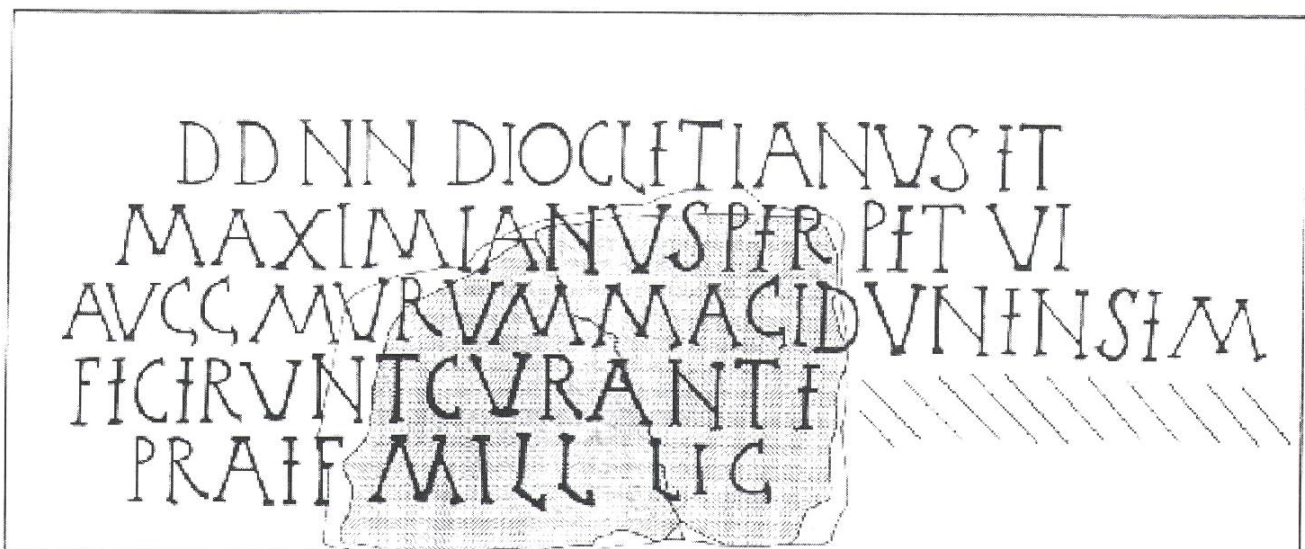 DDNN DIOCLETIANUS ET
MAXIMIANUS PER PET UI
AVGG MURUM MAGIDUNENSEM
FECERUNT CURANTE
PRAEF MILL LIG